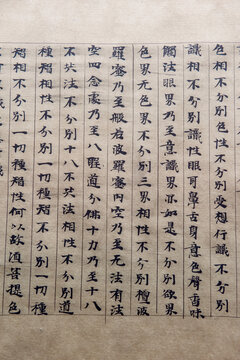 色相不分別色性不分別受想行識
識相不分別識性眼耳鼻舌身意色聲香味
觸法眼界乃至意識界亦如是不分別欲界
色界无色界不分別三界相性不分別檀波
羅蜜乃至般若波羅蜜內空乃至无法有法
空四念處乃至八聖道分佛十力乃至十八
不共法不分別十八不共法相性不分別道
種智相性不分別一切種智不分別一切種
智相不分別一切種智性何以故須菩提色